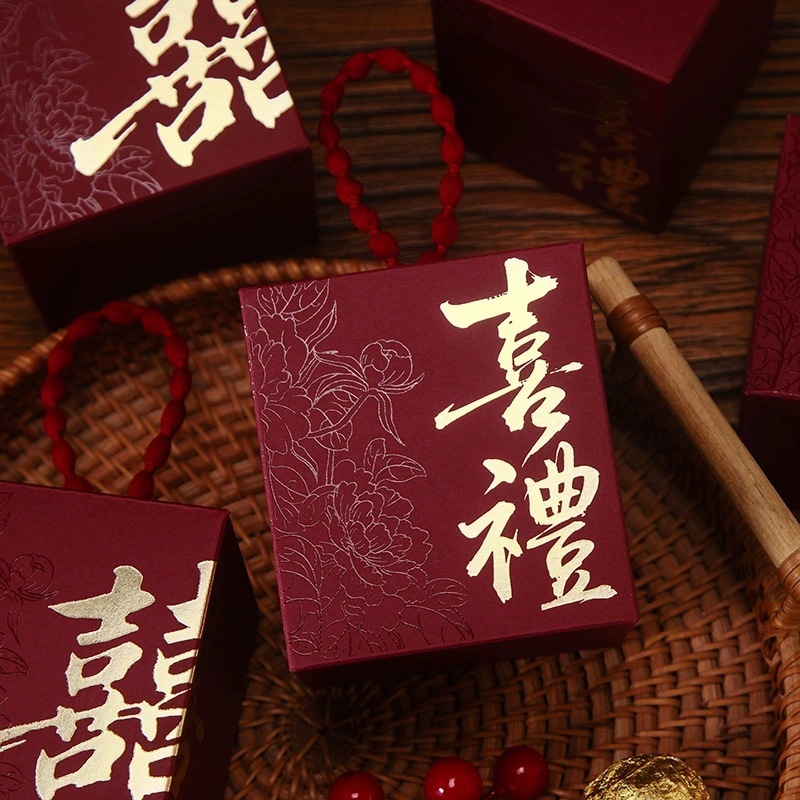 囍
喜
禮
喜
禮
囍